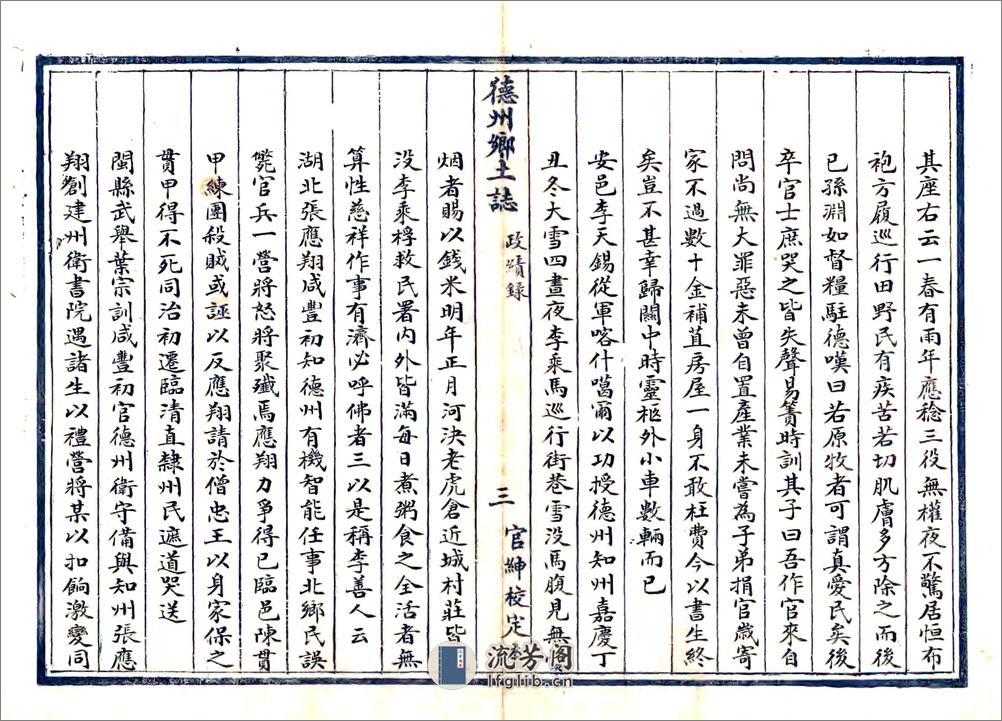 其座右云一春有雨年應稔三役無權夜不驚居恒布
袍方履巡行田野民有疾苦若切肌膚多方除之而後
已孫淵如督糧駐德嘆曰若原牧者可謂真愛民矣後
卒官士庶哭之皆失聲易簀時訓其子曰吾作官來自
問尚無大罪惡未曾自置產業未嘗為子弟捐官歲寄
家不過數十金補苴房屋一身不敢枉費今以書生終
矣豈不甚幸歸關中時靈柩外小車數輛而已
安邑李天錫從軍喀什噶爾以功授德州知州嘉慶丁
丑冬大雪四晝夜李乘馬巡行街巷雪沒馬腹見無
德州鄉土誌 政績錄 三 官紳校定本
烟者賜以錢米明年正月河決老虎倉近城村莊皆
沒李乘桴救民署內外皆滿每日煮粥食之全活者無
算性慈祥作事有濟必呼佛者三以是稱李善人云
湖北張應翔咸豐初知德州有機智能任事北鄉民誤
斃官兵一營將怒將聚殲焉應翔力爭得已臨邑陳貫
甲練團殺賊或誣以反應翔請於僧忠王以身家保之
貫甲得不死同治初遷臨清直隸州民遮道哭送
閩縣武舉葉宗訓咸豐初官德州衛守備與知州張應
翔創建州衛書院遇諸生以禮營將某以扣餉激變同
流芳閣
lfglib.cn